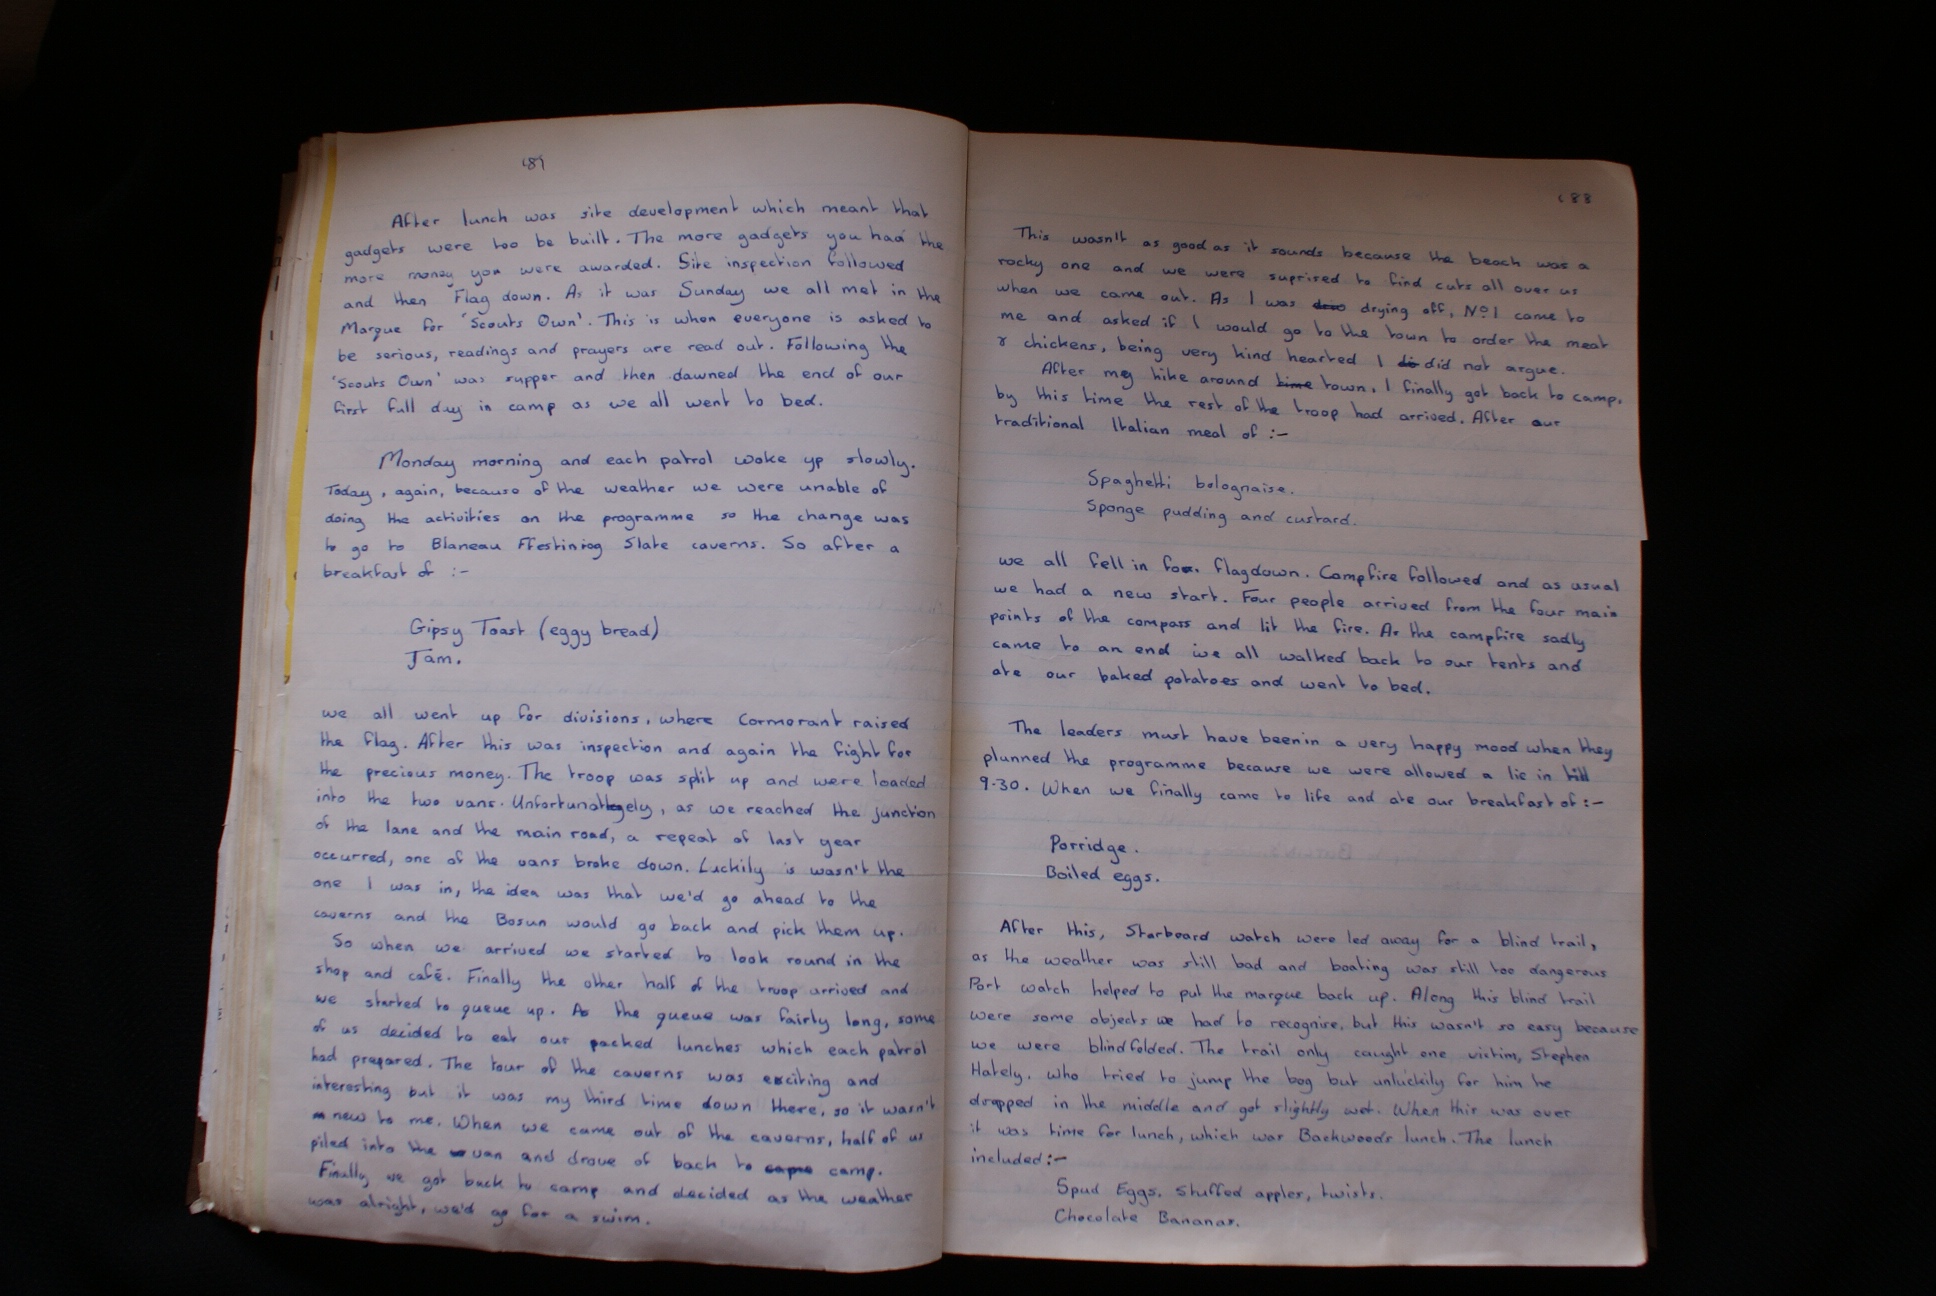 187
After lunch was site development which meant that
gadgets were too be built. The more gadgets you had the
more money you were awarded. Site inspection followed
and then Flag down. As it was Sunday we all met in the
Marque for 'Scouts Own'. This is when everyone is asked to
be serious, readings and prayers are read out. Following the
'Scouts Own' was supper and then dawned the end of our
first full day in camp as we all went to bed.
Monday morning and each patrol woke up slowly.
Today, again, because of the weather we were unable of
doing the activities on the programme so the change was
to go to Blaneau Ffestiniog Slate caverns. So after a
breakfast of :-
Gipsy Toast (eggy bread)
Jam.
we all went up for divisions, where Cormorant raised
the flag. After this was inspection and again the fight for
the precious money. The troop was split up and were loaded
into the two vans. Unfortunately, as we reached the junction
of the lane and the main road, a repeat of last year
occurred, one of the vans broke down. Luckily is wasn't the
one I was in, the idea was that we'd go ahead to the
caverns and the Bosun would go back and pick them up.
So when we arrived we started to look round in the
shop and café. Finally the other half of the troop arrived and
we started to queue up. As the queue was fairly long, some
of us decided to eat our packed lunches which each patrol
had prepared. The tour of the caverns was exciting and
interesting but it was my third time down there, so it wasn't
new to me. When we came out of the caverns, half of us
piled into the van and drove of back to came camp.
Finally we got back to camp and decided as the weather
was alright, we'd go for a swim.
188
This wasn't as good as it sounds because the beach was a
rocky one and we were suprised to find cuts all over us
when we came out. As I was drying off, No1 came to
me and asked if I would go to the town to order the meat
& chickens, being very kind hearted I do did not argue.
After my hike around time town, I finally got back to camp,
by this time the rest of the troop had arrived. After our
traditional Italian meal of :-
Spaghetti bolognaise.
Sponge pudding and custard.
we all fell in for flagdown. Campfire followed and as usual
we had a new start. Four people arrived from the four main
points of the compass and lit the fire. As the campfire sadly
came to an end we all walked back to our tents and
ate our baked potatoes and went to bed.
The leaders must have been in a very happy mood when they
planned the programme because we were allowed a lie in till
9-30. When we finally came to life and ate our breakfast of :-
Porridge.
Boiled eggs.
After this, Starboard watch were led away for a blind trail,
as the weather was still bad and boating was still too dangerous
Port watch helped to put the marque back up. Along this blind trail
were some objects we had to recognise, but this wasn't so easy because
we were blindfolded. The trail only caught one victim, Stephen
Hately, who tried to jump the bog but unluckily for him he
dropped in the middle and got slightly wet. When this was over
it was time for lunch, which was Backwoods lunch. The lunch
included :-
Spud Eggs, Stuffed apples, twists.
Chocolate Bananas.